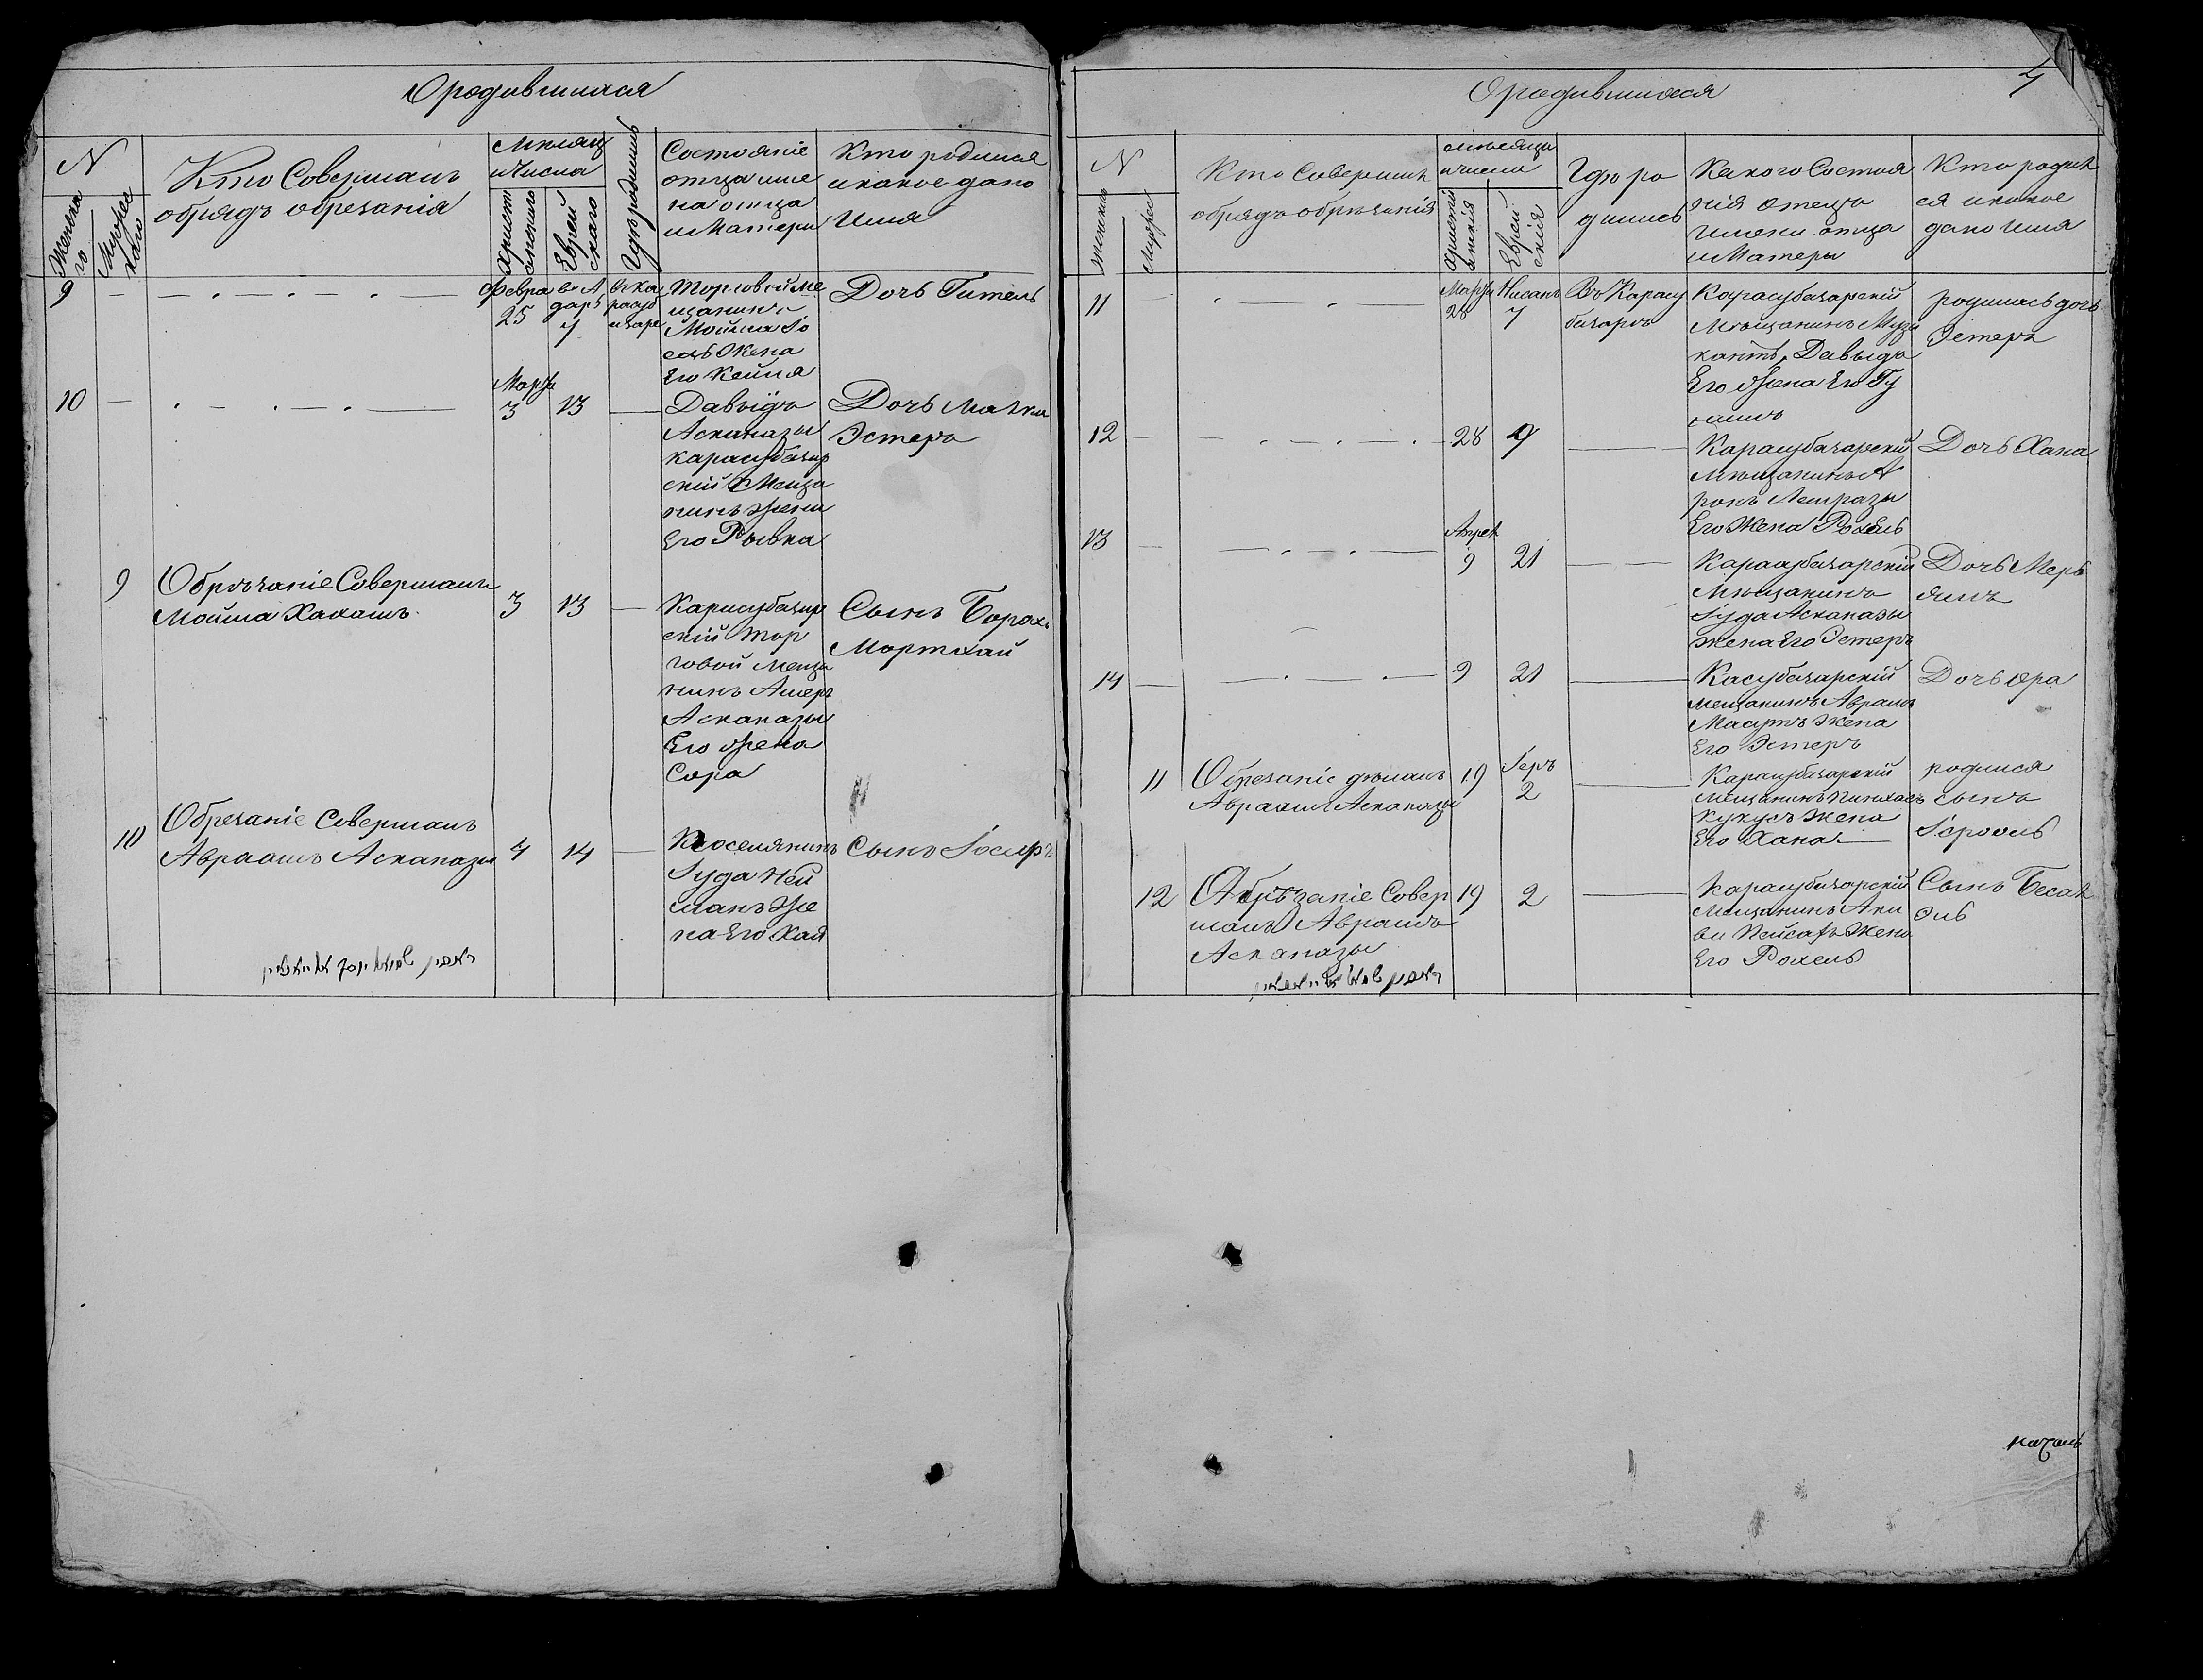 О родившихся
N
Женска
го
Мужес
каго
Кто Совершалъ
обрядъ обрезанія
Месяц
и Числа
Христі
анского
Еврей
скаго
Где родились
Состояніе
отца име
на отца
и Матери
Кто родился
и какое дано
Имя
9
Февра
25
в А
даръ
7
Торговой Ме
щанинъ
Мойша Іо
сль Жена
Его Кейля
Дочь Гитель
10
Марта
3
13
Давыдъ
Асканазы
Карасубазар
скій Меща
нинъ Жена
Его Рывка
Дочь Малка
Эстеръ
9
Обрѣзаніе Совершалъ
Мойша Хахамъ
3
13
Карасубазар
скій Тор
говой Меща
нинъ Ашеръ
Асканазы
Его Жена
Сора
Сынъ Борохъ
Мортхай
10
Обрезаніе Совершалъ
Авраамъ Асканазы
4
14
Поселянинъ
Іуда Ней
манъ Же
на Его Хая
Сынъ Іосифъ
4
О родившихся
N
Женскихъ
Кто Совершилъ
обрядъ обрѣзанія
Мѣсяцы
и числа
Христі
анскія
Еврей
скія
Гдѣ ро
дились
Какого Состоя
нія отецъ
Имена отца
и Матеры
Кто родил
ся и какое
дано имя
11
Марта
28
Нисанъ
Въ Карасу
базаръ
Карасубазарскій
Мѣщанинъ Музы
кантъ Давыдъ
родилась дочь
Эстеръ
12
28
Карасубазарскій
Мѣщанинъ А
ронъ
Его Жена Рохель
Дочь Хана
13
Апрел
9
21
Карасубазарскій
Мѣщанинъ
Іуда Асканазы
Жена Его Эстеръ
Дочь Мерь
ямъ
14
9
21
Касубазарскій
Мещанинъ Авраамъ
Масутъ Жена
Его Эстеръ
11
Обрезаніе дѣлалъ
Авраамъ Асканазы
19
2
Карасубазарскій
Мещанинъ Пинхасъ
Кукусъ Жена
Его Хана
родился
сынъ
Ісроель
12
Обрѣзаніе Совер
шалъ Авраамъ
Асканазы
19
2
Карасубазарскій
Мещанинъ Аки
ва Пейсахъ Жена
Его Рохель
Сынъ Бесал
эль